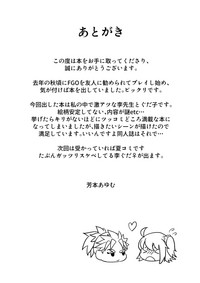 あとがき
この度は本をお手に取ってくださり、
誠にありがとうございます。
去年の秋頃にFGOを友人に勧められてプレイし始め、
気が付けば本を出していました。ビックリです。
今回出した本は私の中で激アツな李先生とぐだ子です。
絵柄安定してない、内容が謎etc…
挙げたらキリがないほどにツッコミどころ満載な本に
なってしまいましたが、描きたいシーンが描けたので
満足しています。いいんです同人誌はそれで…
次回は受かっていれば夏コミです
たぶんガッツリスケベしてる李ぐだ♀が出ます。
芳本あゆむ